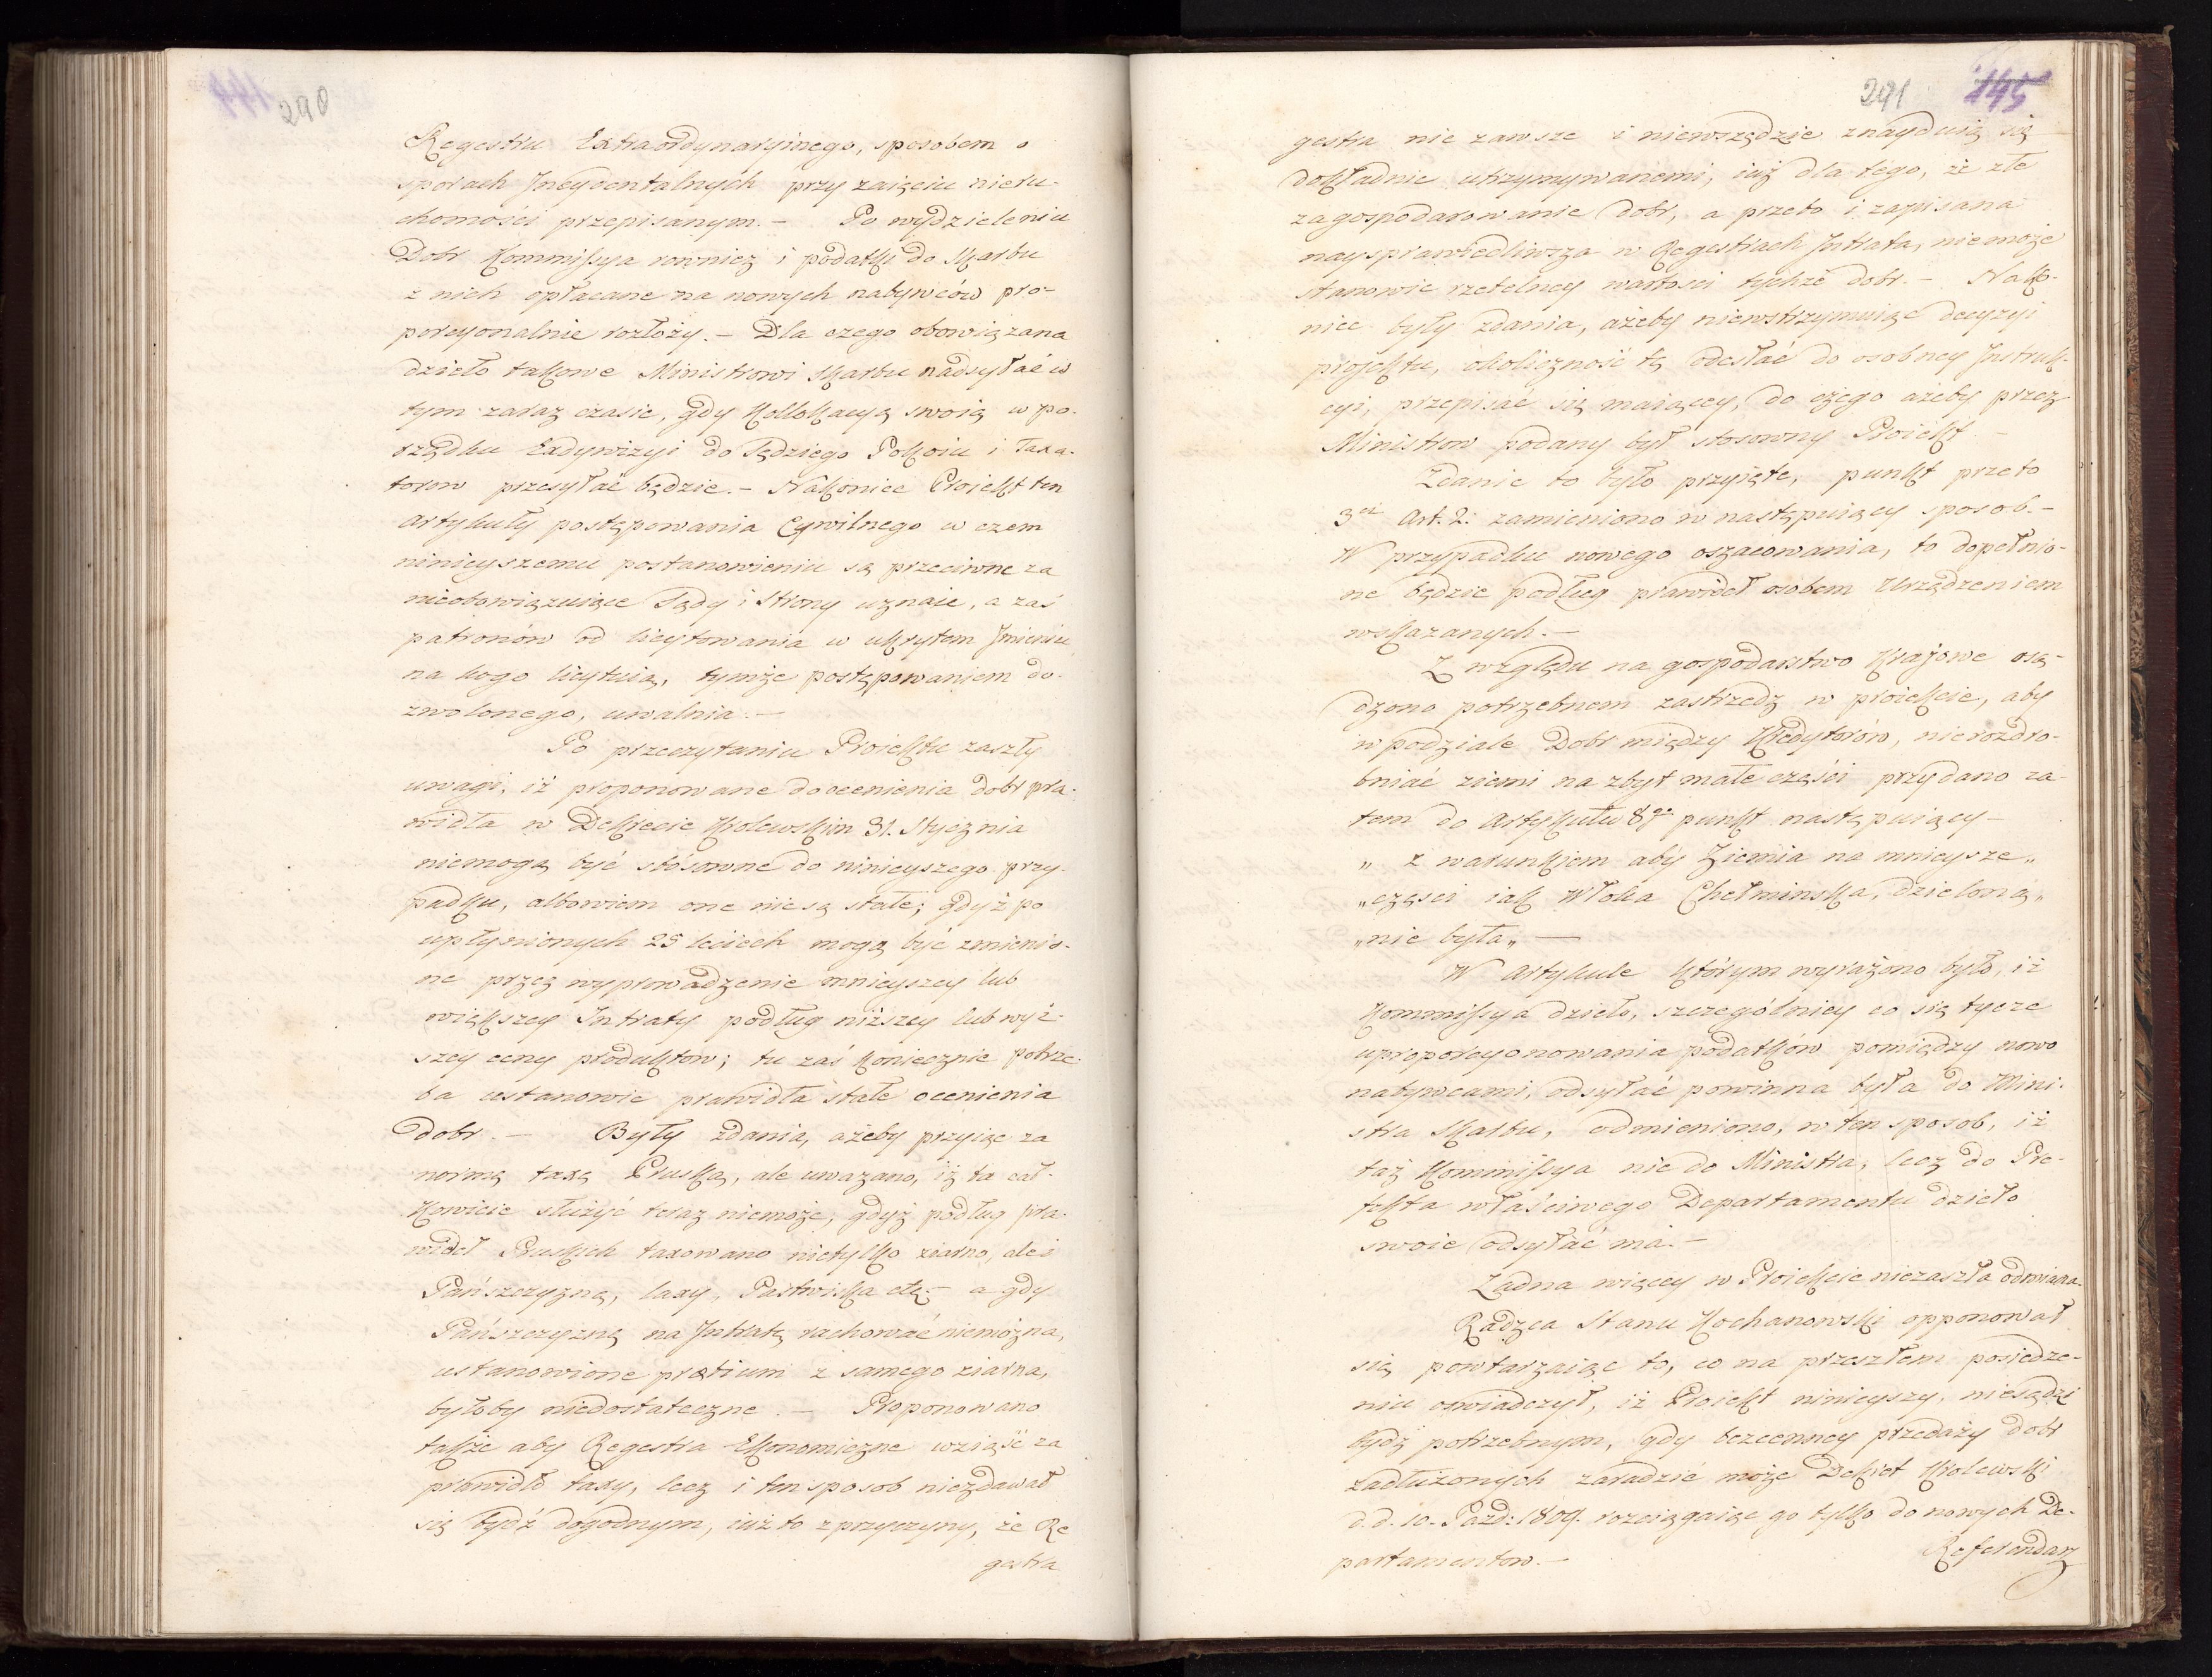 290
144
Regestru Extraordynaryinego, sposobem o
sporach Incydentalnych przy zaięciu nieru-
chomości przepisanym. — Po wydzieleniu
Dobr Kommissya rownież i podatki do Skarbu
z nich opłacane na nowych nabywców pro-
porcyonalnie rozłoży. — Dla czego obowiązana
dzieło takowe Ministrowi Skarbu nadsyłać w
tym zaraz czasie, gdy Kollokacyą swoią w po-
rządku Exdywizyi do Sędziego Pokoiu i Taxa-
torow przesyłać będzie. — Nakoniec Proiekt ten
artykuły postępowania Cywilnego w czem
ninieyszemu postanowieniu są przeciwne za
nieobowiązuiące Sądy i Strony uznaie, a zaś
patronów od licytowania w ukrytem Imieniu
na kogo licytuią, tymże postępowaniem do-
zwolonego, uwalnia. —
Po przeczytaniu Proiektu zaszły
uwagi, iż proponowane do ocenienia dobr pra-
widła w Dekrecie Krolewskim 31. Stycznia
niemogą być stósowne do ninieyszego przy-
padku, albowiem one nie są stałe; gdyż po
upłynionych 25 leciech mogą być zmienio-
ne przez wyprowadzenie mnieyszey lub
większey Intraty podług niższey lub wyż-
szey ceny produktow; tu zaś koniecznie potrze-
ba ustanowic prawidła stałe ocenienia
dobr. — Były zdania, ażeby przyiąc za
normę taxę Pruską, ale uwazano, iż ta cał-
kowicie służyć teraz niemoże, gdyż podług pra-
wideł Pruskich taxowano nietylko ziarno, ale i
Pańszczyznę, lasy, Pastwiska etc. — a gdy
Pańszczyznę na Intratę rachować niemożna,
ustanowione pretium z samego ziarna,
byłoby niedostateczne. — Proponowano
także aby Regestra Ekonomiczne wziąść za
prawidło taxy, lecz i ten sposob niezdawał
się bydź dogodnym, iuż to z przyczyny, że Re
gestra
291
145
gestra nie zawsze i niewszędzie znayduią się
dokładnie utrzymywanemi, iuż dla tego, że złe
zagospodarowanie dobr, a przeto i zapisana
naysprawiedliwsza w Regestrach Intrata, niemoże
stanowic rzetelney wartosci tychże dobr. — Nako-
niec były zdania, ażeby niewstrzymuiąc decyzyi
projektu, okoliczność tę odesłać do osobney Instruk-
cyi, przepisac się maiącey, do czego ażeby przez
Ministrow podany był stosowny Proiekt. —
Zdanie to było przyięte, punkt przeto
3ci Art. 2: zamieniono w następuiący sposob. —
W przypadku nowego oszacowania, to dopełnio-
ne będzie podług prawideł osobem Urządzeniem
wskazanych. —
Z względu na gospodarstwo Krajowe osą-
dzono potrzebnem zastrzedz w proiekcie, aby
w podziale Dobr między Kredytorów, nierozdro-
bniać ziemi na zbyt małe części przydano za-
tem do Artykułu 8go punkt następuiący —
„ z warunkiem aby Ziemia na mnieysze „
„częsci iak Włoka Chełminska, dzieloną „
„nie była„ —
W artykule którym wyrażono było, iż
Kommissya dzieło, szczególniey co się tycze
uproporcyonowania podatków pomiędzy nowo
nabywcami, odsyłać powinna była do Mini-
stra Skarbu, odmieniono, w ten sposob, iż
taż Kommissya nie do Ministra, lecz do Pre-
fekta właściwego Departamentu dzieło
swoie odsyłać ma. —
Żadna więcey w Proiekcie niezaszła odmiana.
Radzca Stanu Kochanowski opponował
się powtarzaiąc to, co na przeszłem posiedze-
niu oswiadczył, iż Proiekt ninieyszy, niesądzi
bydź potrzebnym, gdy bezcenney przedaży dobr
zadłużonych zaradzić może Dekret Krolewski
d. d. 10. Pazd: 1809. rozciągaiąc go tylko do nowych De-
partamentow. —
Referendarz